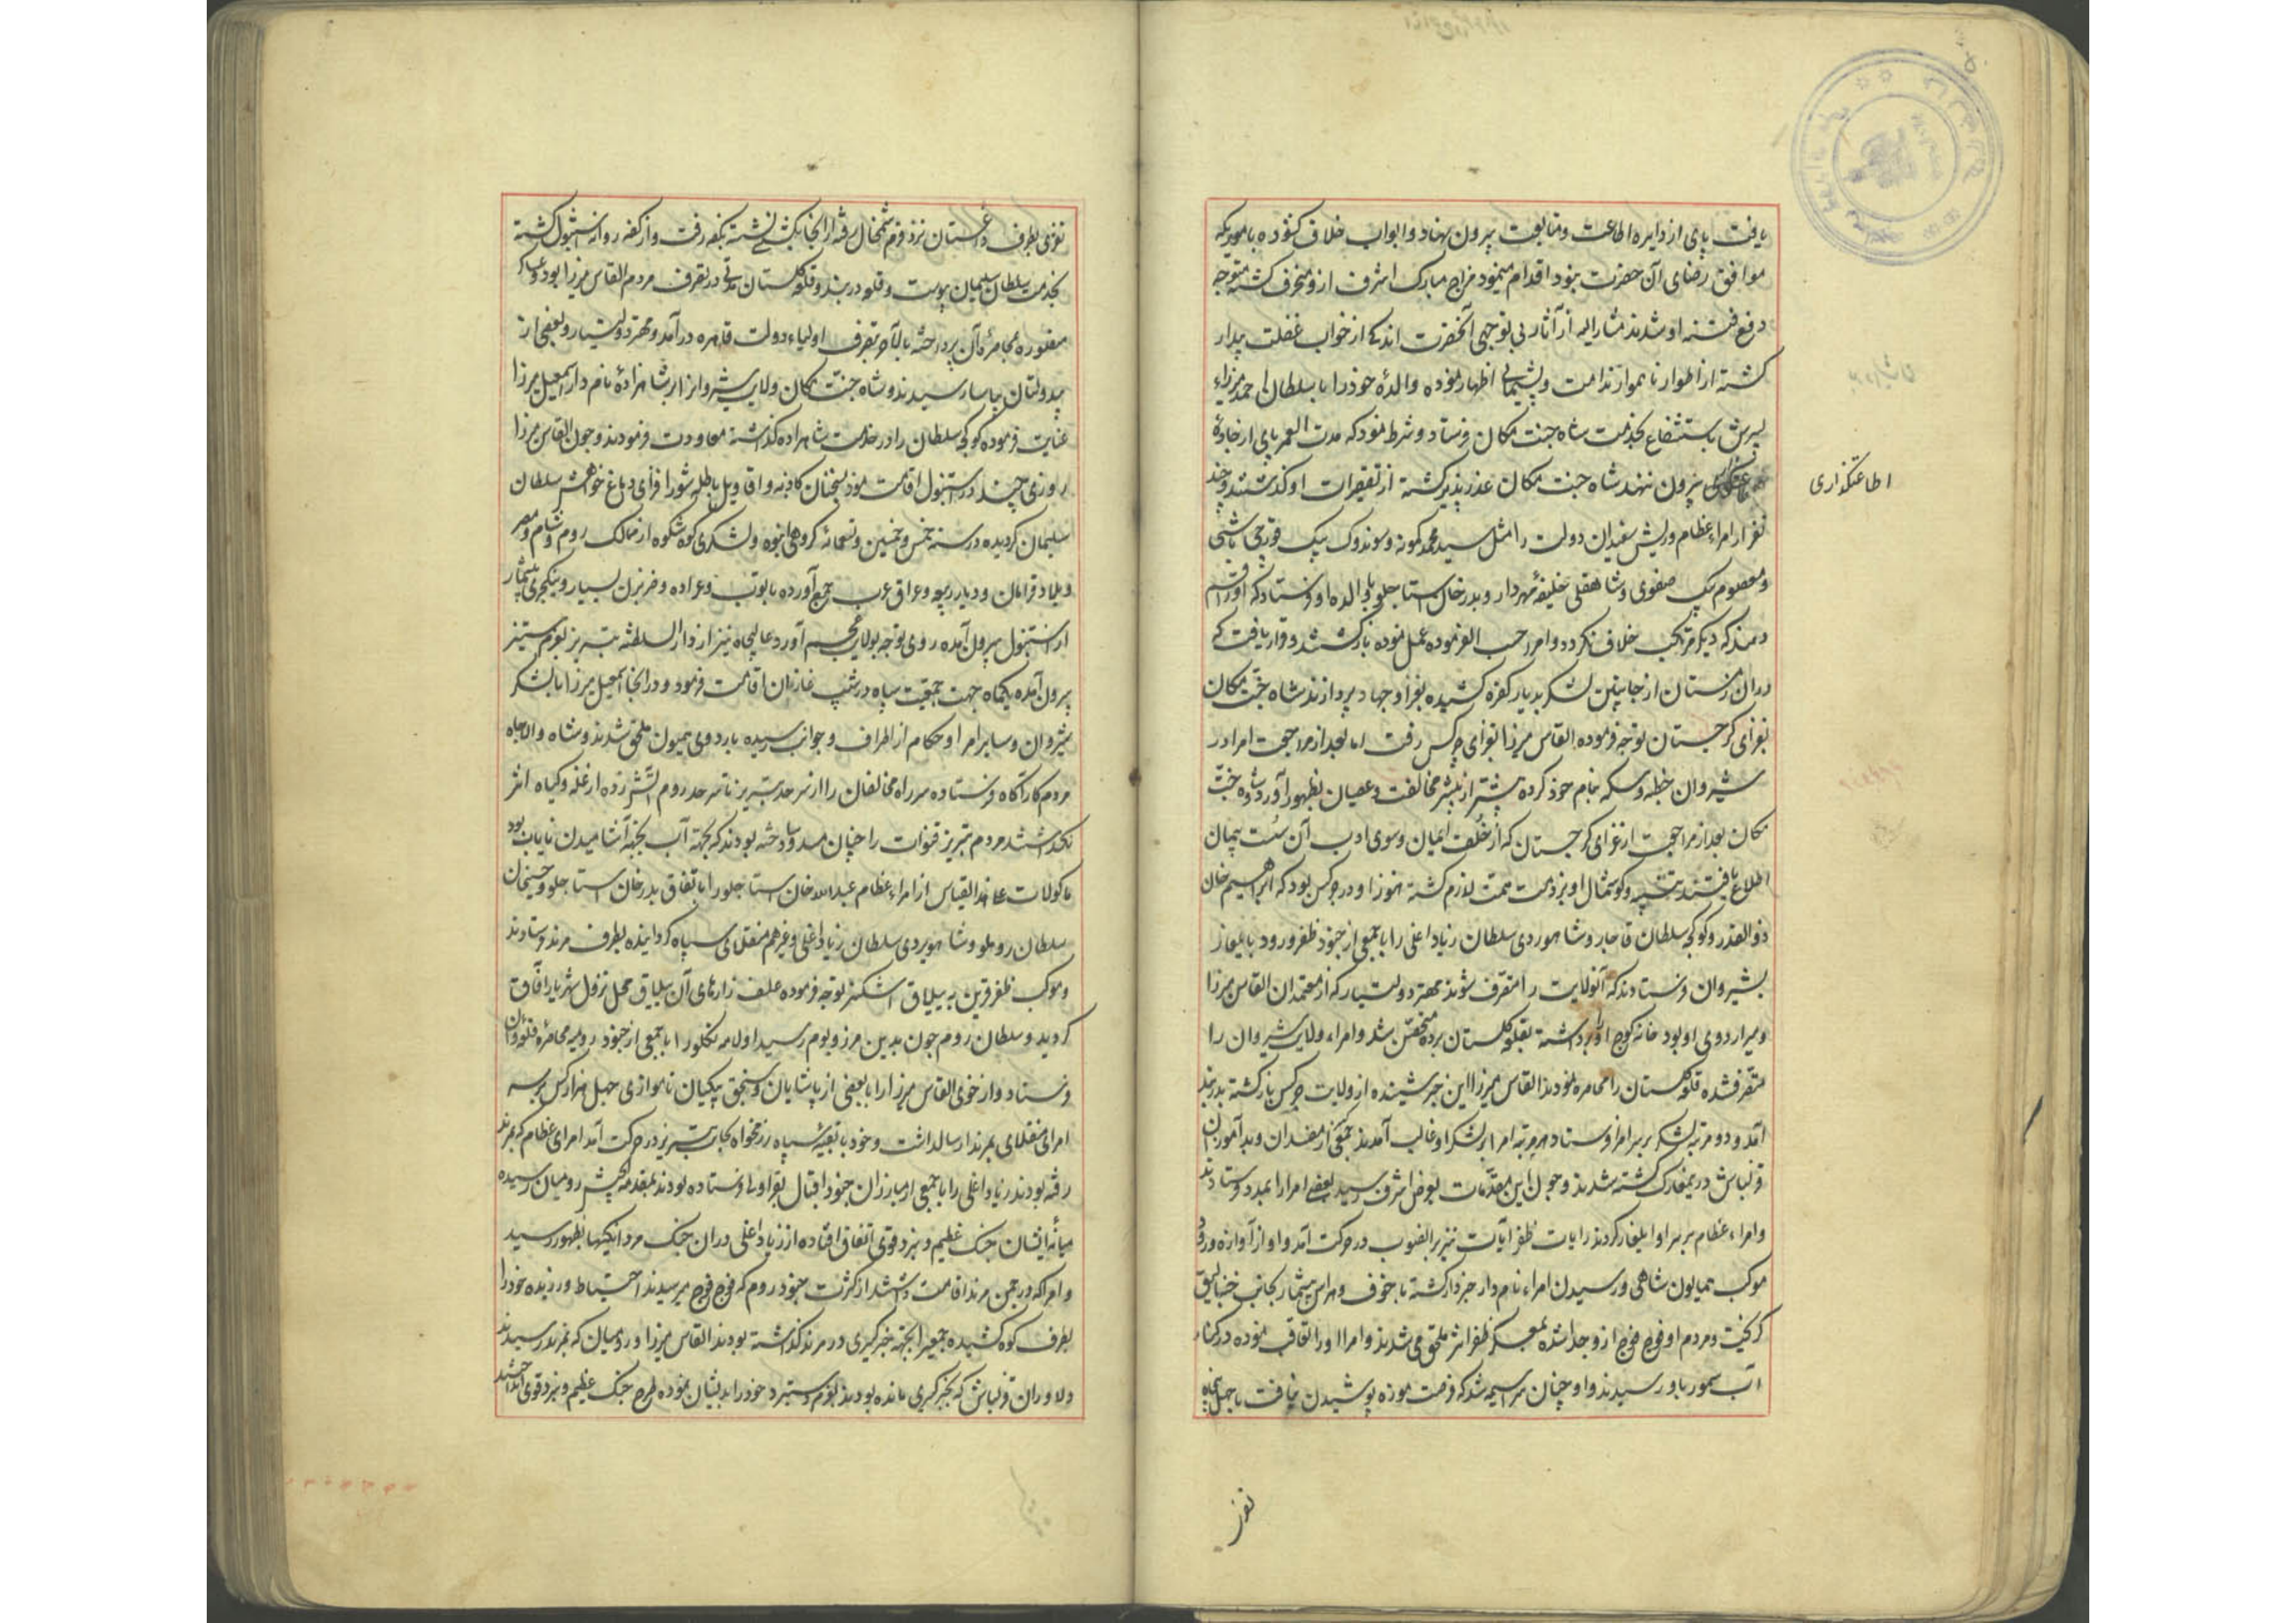 یافت پای از دایره اطاعت و متابعت بیرون نهاد و ابواب خلاف کشوده باموریکه
موافق رضای آن حضرت نبود اقدام مینمود مزاج مبارک اشرف ازو منحرف کشته متوجه
دفع فتنه او شدند مشارالیه از آثار بی توجهی آنحضرت اندکی از خواب غفلت بیدار
کشته از اطوار ناهموار ندامت و پشیمانی اظهار نموده والدهٔ خود را با سلطان احمد میرزای
پسرش باستشفاع بخدمت شاه جنت مکان فرستاد و شرط نمود که مدت العمر پای از جادهٔ
اطاعتکذاری
بیرون ننهد شاه جنت مکان عذرپذیر کشته از تقصیرات او کذشتند و چند
نفر از امراء عظام و ریش سفیدان دولت را مثل سید محمد کمونه و سوندوک بیک قورچی باشی
و معصوم بیک صفوی و شاهقلی خلیفهٔ مهردار و بدرخان استاجلو با والده او فرستاد که او را قسم
دهند که دیکر مرتکب خلاف نکردد و امرا حسب الفرموده عمل نموده بازکشتند و قرار یافت که
دران زمستان از جانبین لشکر بدیار کفره کشیده بغزا و جهاد پردازند شاه جنت مکان
بغزای کرجستان توجه فرموده القاس میرزا بغزای چرکس رفت اما بعد از مراجعت امرا در
شیروان خطبه و سکه بنام خود کرده بیشتر از پیشتر مخالفت و عصیان بظهور آورد شاه جنت
مکان بعد از مراجعت از غزای کرجستان که از خلف ایمان و سوی ادب آن سست پیمان
اطلاع یافتند تنبیه و کوشمال او بر ذمت همت لازم کشته هنوز او در چرکس بود که ابراهیم خان
ذوالقدر و کوکجه سلطان قاجار و شاهویردی سلطان زیاداغلی را با جمعی از جنود ظفر ورود بایلغار
بشیروان فرستادند که آنولایت را متصرف شوند مهتر دولتیار که از معتمدان القاس میرزا
و میر اردوی او بود خانه کوچ او را برداشته بقلعه کلستان برده متحصن شد و امراء ولایت شیروان را
متصرف شده قلعه کلستان را محاصره نمودند القاس میرزا این خبر شنیده از ولایت چرکس بازکشته بدربند
آمد و دو مرتبه لشکر بر سر امرا فرستاد هر مرتبه امرا بر لشکر او غالب آمدند جمعی از مفسدان و بدآموزان
قزلباش در معارک کشته شدند و چون این مقدمات بعرض اشرف رسید بعضی امرا را بمدد فرستادند
و امراء عظام بر سر او ایلغار کردند رایات ظفر آیات نیز بر الصوب در حرکت آمد و او از آوازه ورود
موکب همایون شاهی و رسیدن امراء نام دار خبردار کشته با خوف و هراس بیشمار بجانب خنالیق
کریخت و مردم او فوج فوج ازو جدا شده بمعسکر ظفر اثر ملحق می شدند و امرا او را تعاقب نموده در کنار
آب سمور باو رسیدند و او چنان سراسیمه شد که فرصت موزه پوشیدن نیافت با چهل پنجاه
نفری
نفری بطرف داغستان نزد قرم شمخال رفته از انجا بکشتی نشسته بکفه رفت و از کفه روانه استنبول کشته
بخدمت سلطان سلیمان پیوست و قلعه دربند و قلعه کلستان مدتی در تصرف مردم القاس میرزا بود و عساکر
منصوره بمحاصرهٔ آن پرداخته بالآخره بتصرف اولیاء دولت قاهره درآمد و مهتر دولتیار و بعضی از
بیدولتان بیاسا رسیدند و شاه جنت مکان ولایت شیروان را بشاهزادهٔ نامدار اسمعیل میرزا
عنایت فرموده کوکجه سلطان را در خدمت شاهزاده کذاشته معاودت فرمودند و چون القاس میرزا
روزی چند در استنبول اقامت نمود بسخنان کاذبه و اقاویل باطله شورافزای دماغ خواهش سلطان
سلیمان کردیده در سنه خمس و خمسین و تسعمائه کروهی انبوه و لشکری کوه شکوه از ممالک روم و شام و مصر
و بلاد قرامان و دیار ربیعه و عراق عرب جمع آورده با توپ و عراده و ضربزن بسیار و ینکچری بیشمار
از استنبول بیرون آمده روی توجه بولایت عجم آورد عالیجاه نیز از دارالسلطنه تبریز بعزم ستیز
بیرون آمده یکماه جهت جمعیت سپاه در شنب غازان اقامت فرمود و در انجا اسمعیل میرزا با لشکر
شیروان و سایر امرا و حکام از اطراف و جوانب رسیده باردوی همیون ملحق شدند و شاه والاجاه
مردم کارآکاه فرستاده سر راه مخالفان را از سرحد تبریز تا سرحد روم آتش زده از غله و کیاه اثر
نکذاشتند مردم تبریز قنوات را چنان مسدود ساخته بودند که بجهة آب بجهة آشامیدن نایاب بود
ماکولات علی هذا القیاس از امراء عظام عبدالله خان استاجلو را باتفاق بدرخان استاجلو و حسینخان
سلطان روملو و شاهویردی سلطان زیاداغلی و غیرهم منقلای سپاه کردانیده بطرف مرند فرستادند
و موکب ظفر قرین به ییلاق اشکنبر توجه فرموده علف زارهای آن ییلاق محل نزول شهریار آفاق
کردید و سلطان روم چون بدین مرز و بوم رسید اولامه تکلو را با جمعی از جنود رومیه بمحاصرهٔ قلعه وان
فرستاد و از خوی القاس میرزا را با بعضی از پاشایان و سنجق بیکیان تا موازی چهل هزار کس بر سر
امرای منقلای بمرند ارسال داشت و خود با بقیهٔ سپاه رزمخواه بجانب تبریز در حرکت آمد امرای عظام که بمرند
رفته بودند زیاداغلی را با جمعی از مبارزان جنود اقبال بقراولی فرستاده بودند بمقدمه لشکر رومیان رسیده
میانهٔ ایشان جنک عظیم و نبرد قوی اتفاق افتاده از زیاد اغلی دران جنک مردانکیها بظهور رسید
و امرا که در چمن مرند اقامت داشتند از کثرت جنود روم که فوج فوج میرسیدند احتیاط ورزیده خود را
بطرف کوه کشیده جمعی را بجهة خبرکیری در مرند کذاشته بودند القاس میرزا و رومیان که بمرند رسیدند
دلاوران قزلباش که بخبرکیری مانده بودند بعزم ستیز خود را بدیشان نموده طرح جنک عظیم و نبرد قوی انداختند